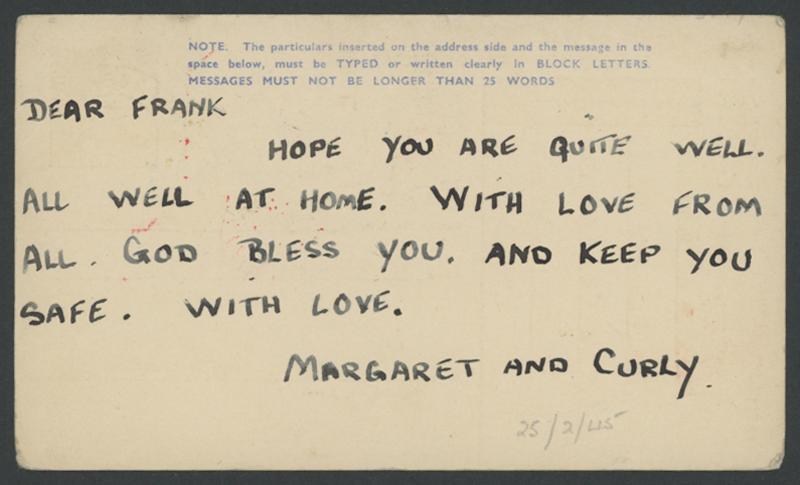 NOTE. The particulars inserted on the address side and the message in the
space below, must be TYPED or written clearly in BLOCK LETTERS.
MESSAGES MUST NOT BE LONGER THAN 25 WORDS
DEAR FRANK
HOPE YOU ARE QUITE WELL.
ALL WELL AT HOME. WITH LOVE FROM
ALL. GOD BLESS YOU. AND KEEP YOU
SAFE. WITH LOVE.
MARGARET AND CURLY.
25/2/45